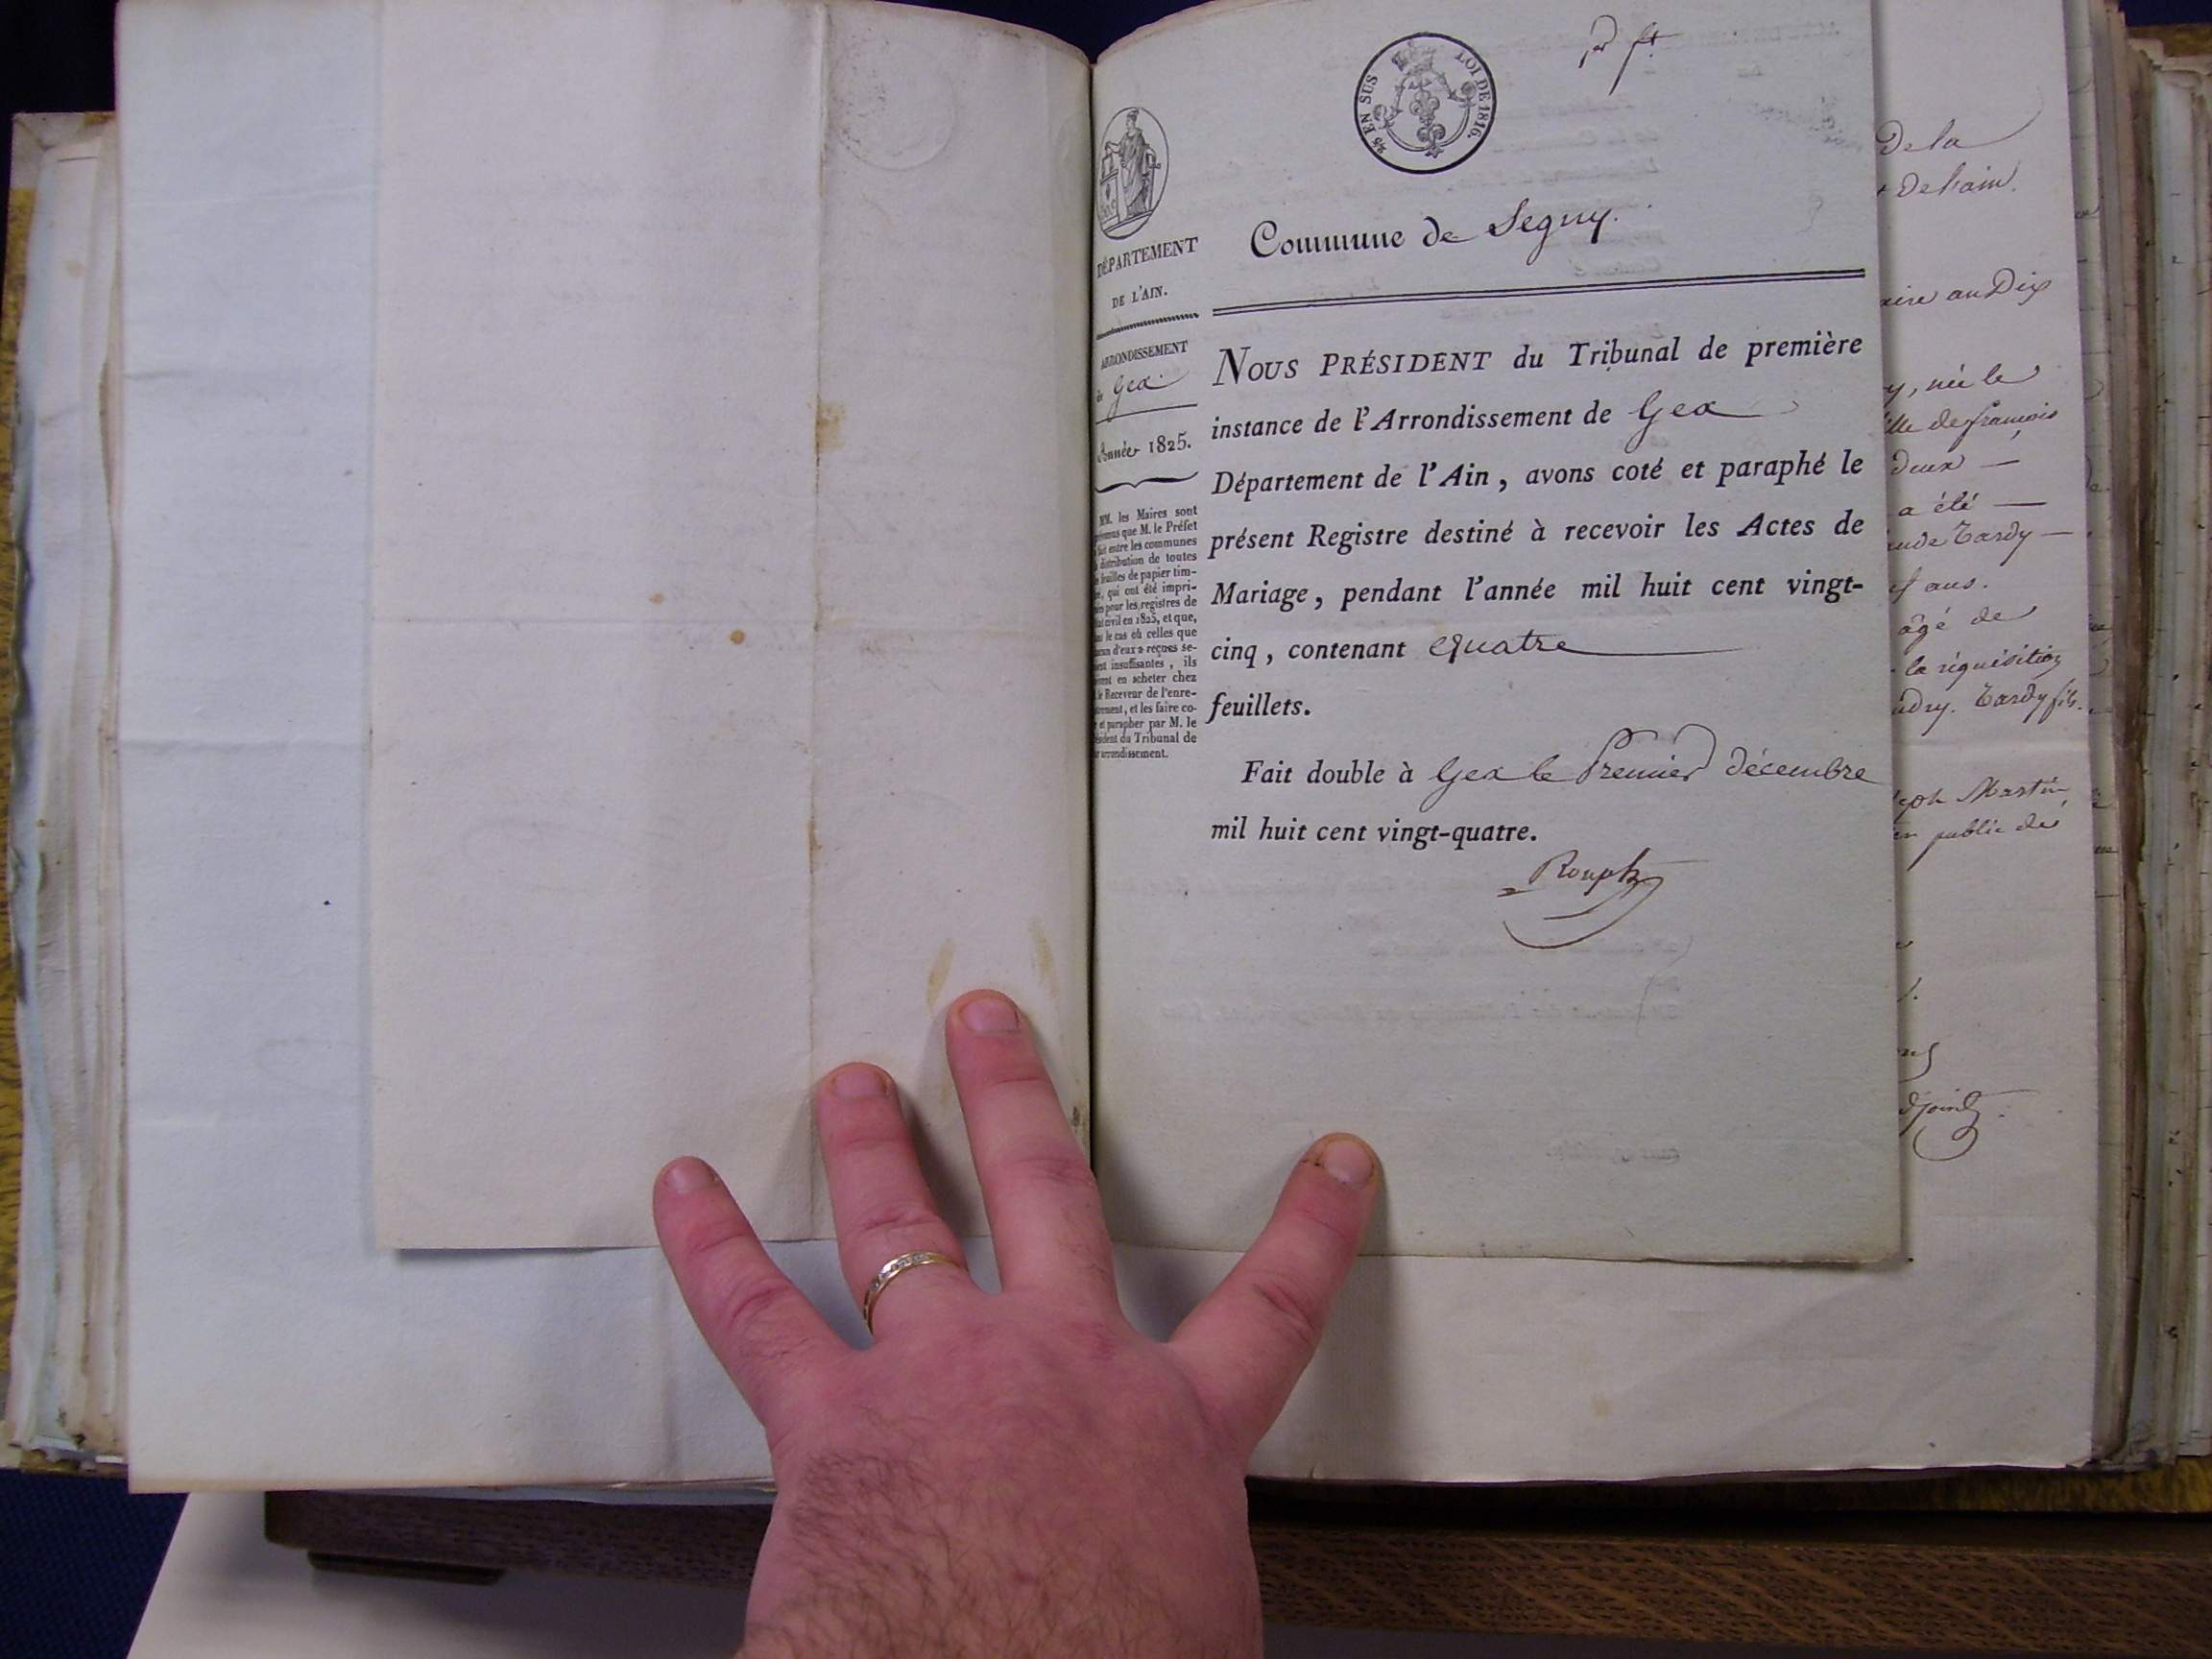 EN SUS LOI DE 1816.
Commune de Segny.
DÉPARTEMENT
DE L'AIN.
ARRONDISSEMENT
de Gex
Année 1825.
MM. les Maires sont
prévenus que M. le Préfet
a fait entre les communes
la distribution de toutes
les feuilles de papier tim-
bré, qui ont été impri-
mées pour les registres de
l'état civil en 1825, et que,
dans le cas où celles que
chacun d'eux a reçues se-
raient insuffisantes, ils
doivent en acheter chez
le Receveur de l'enre-
gistrement, et les faire co-
ter et parapher par M. le
Président du Tribunal de
arrondissement.
NOUS PRÉSIDENT du Tribunal de première
instance de l'Arrondissement de Gex
Département de l'Ain, avons coté et paraphé le
présent Registre destiné à recevoir les Actes de
Mariage, pendant l'année mil huit cent vingt-
cinq, contenant quatre
feuillets.
Fait double à Gex le Premier décembre
mil huit cent vingt-quatre.
De la
De l'ain.
aire an Dix
y, née le
ille de françois
deux —
a été —
aude Tardy —
ans.
âgé de
la réquisition
Tardy fils.
eph Martin,
en public de